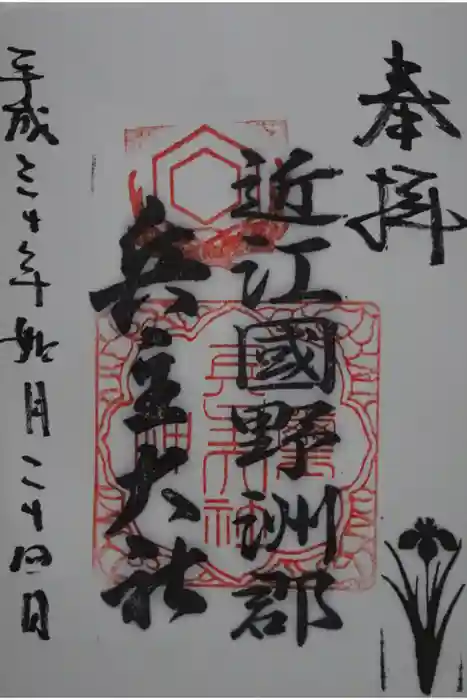 奉拝
近江國野洲郡
兵主大社
平成三十年拾月二十四日